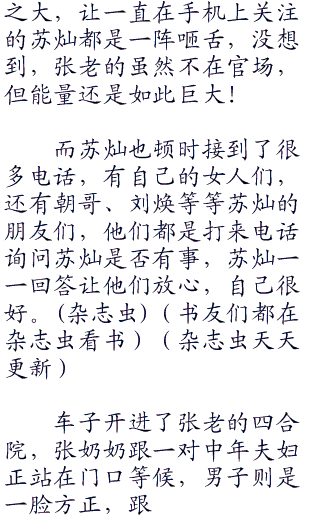 之大，让一直在手机上关注
的苏灿都是一阵咂舌，没想
到，张老的虽然不在官场，
但能量还是如此巨大！
而苏灿也顿时接到了很
多电话，有自己的女人们，
还有朝哥、刘焕等等苏灿的
朋友们，他们都是打来电话
询问苏灿是否有事，苏灿一
一回答让他们放心，自己很
好。(杂志虫)（书友们都在
杂志虫看书）（杂志虫天天
更新）
车子开进了张老的四合
院，张奶奶跟一对中年夫妇
正站在门口等候，男子则是
一脸方正，跟